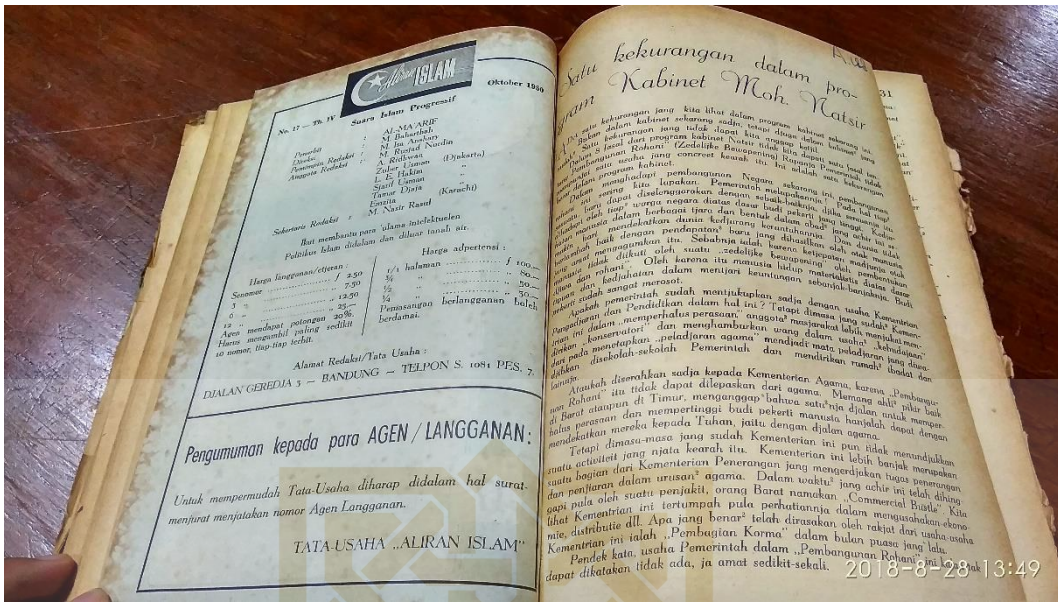 Aliran ISLAM
No. 17 — Th. IV
Suara Islam Progressif
Oktober 1950
Penerbit : AL-MA'ARIF
Direksi : M. Baharthah
Pemimpin Redaksi : M. Isa Anshary
Anggota Redaksi : M. Rusjad Nurdin
A. Ridhwan
Zular Usman (Djakarta)
L. E. Hakim "
Sjarif Usman "
Tamar Djaja "
Emzita (Karachi)
Sekertaris Redaksi : M. Nazir Rasul
Ikut membantu para 'ulama intelektuelen
Politikus Islam didalam dan diluar tanah air.
Harga langganan/etjeran :
Senomer f 2.50
3 " " 7.50
6 " " 12.50
12 " " 25.—
Agen mendapat potongan 20%.
Harus mengambil paling sedikit
10 nomor, tiap-tiap terbit.
Harga adpertensi :
1/1 halaman f 100.—
¾ " " 80.—
½ " " 50.—
¼ " " 30.—
Pemasangan berlangganan boleh
berdamai.
Alamat Redaksi/Tata Usaha :
DJALAN GEREDJA 3 — BANDUNG — TELPON S. 1081 PES. 7.
Pengumuman kepada para AGEN / LANGGANAN:
Untuk mempermudah Tata-Usaha diharap didalam hal surat-
menjurat menjatakan nomor Agen Langganan.
TATA-USAHA „ALIRAN ISLAM"
Satu kekurangan dalam pro-
gram Kabinet Moh. Natsir
31
ADA satu kekurangan jang kita lihat dalam program kabinet sekarang ini.
Bukan dalam kabinet sekarang sadja, tetapi djuga dalam kabinet² jang
Satu kekurangan jang tidak dapat kita anggap ketjil.
dari program kabinet Natsir tidak kita dapati satu fasal ten-
Pembangunan Rohani" (Zedelijke Bewapening) Rupanja Pemerintah tidak
usaha jang concreet kearah itu. Ini adalah satu kekurangan
besar dalam program kabinet.
Dalam menghadapi pembangunan Negara sekarang ini, pembangunan
ini sering kita lupakan. Pemerintah melupakannja! Pada hal tiap²
usaha baru dapat diselenggarakan dengan sebaik-baiknja, djika semuanja itu
oleh tiap² warga negara diatas dasar budi pekerti jang tinggi.
manusia dalam berbagai tjara dan bentuk dalam abad jang achir ini se-
mendekatkan dunia kedjurang keruntuhannja. Dan dunia tidak
baik dengan pendapatan² baru jang dihasilkan oleh otak manusia
jang amat mengagumkan itu. Sebabnja ialah karena ketjepatan madjunja otak
manusia tidak diikuti oleh suatu „zedelijke bewapening" oleh pembentukan
djiwa dan rohani". Oleh karena itu manusia hidup materialistis diatas dasar
dan kedjahatan dalam mentjari keuntungan sebanjak-banjaknja. Budi
pekerti sudah sangat merosot.
Apakah pemerintah sudah mentjukupkan sadja dengan usaha Kementerian
Pengadjaran dan Pendidikan dalam hal ini? Tetapi dimasa jang sudah² Kemen-
terian ini dalam „memperhalus perasaan" anggota² masjarakat lebih menjukai men-
dirikan „konservatori" dan menghamburkan uang dalam usaha² „kebudajaan"
dari pada menetapkan „peladjaran agama" mendjadi mata peladjaran jang diwa-
djibkan disekolah-sekolah Pemerintah dan mendirikan rumah² ibadat dan
lainnja.
Ataukah diserahkan sadja kepada Kementerian Agama, karena „Pembangu-
nan Rohani" itu tidak dapat dilepaskan dari agama. Memang ahli² pikir baik
di Barat ataupun di Timur, menganggap bahwa satu²nja djalan untuk memper-
halus perasaan dan mempertinggi budi pekerti manusia hanjalah dapat dengan
mendekatkan mereka kepada Tuhan, jaitu dengan djalan agama.
Tetapi dimasa-masa jang sudah Kementerian ini pun tidak menundjukkan
suatu activiteit jang njata kearah itu. Kementerian ini lebih banjak merupakan
suatu bagian dari Kementerian Penerangan jang mengerdjakan tugas penerangan
dan penjiaran dalam urusan² agama. Dalam waktu² jang achir ini telah dihing-
gapi pula oleh suatu penjakit, orang Barat namakan „Commercial Bustle". Kita
lihat Kementrian ini tertumpah pula perhatiannja dalam mengusahakan ekono-
mie, distributie dll. Apa jang benar² telah dirasakan oleh rakjat dari usaha-usaha
Kementrian ini ialah „Pembagian Korma" dalam bulan puasa jang lalu.
Pendek kata, usaha Pemerintah dalam „Pembangunan Rohani" ini
dapat dikatakan tidak ada, ja amat sedikit-sekali.
2018-8-28 13:49